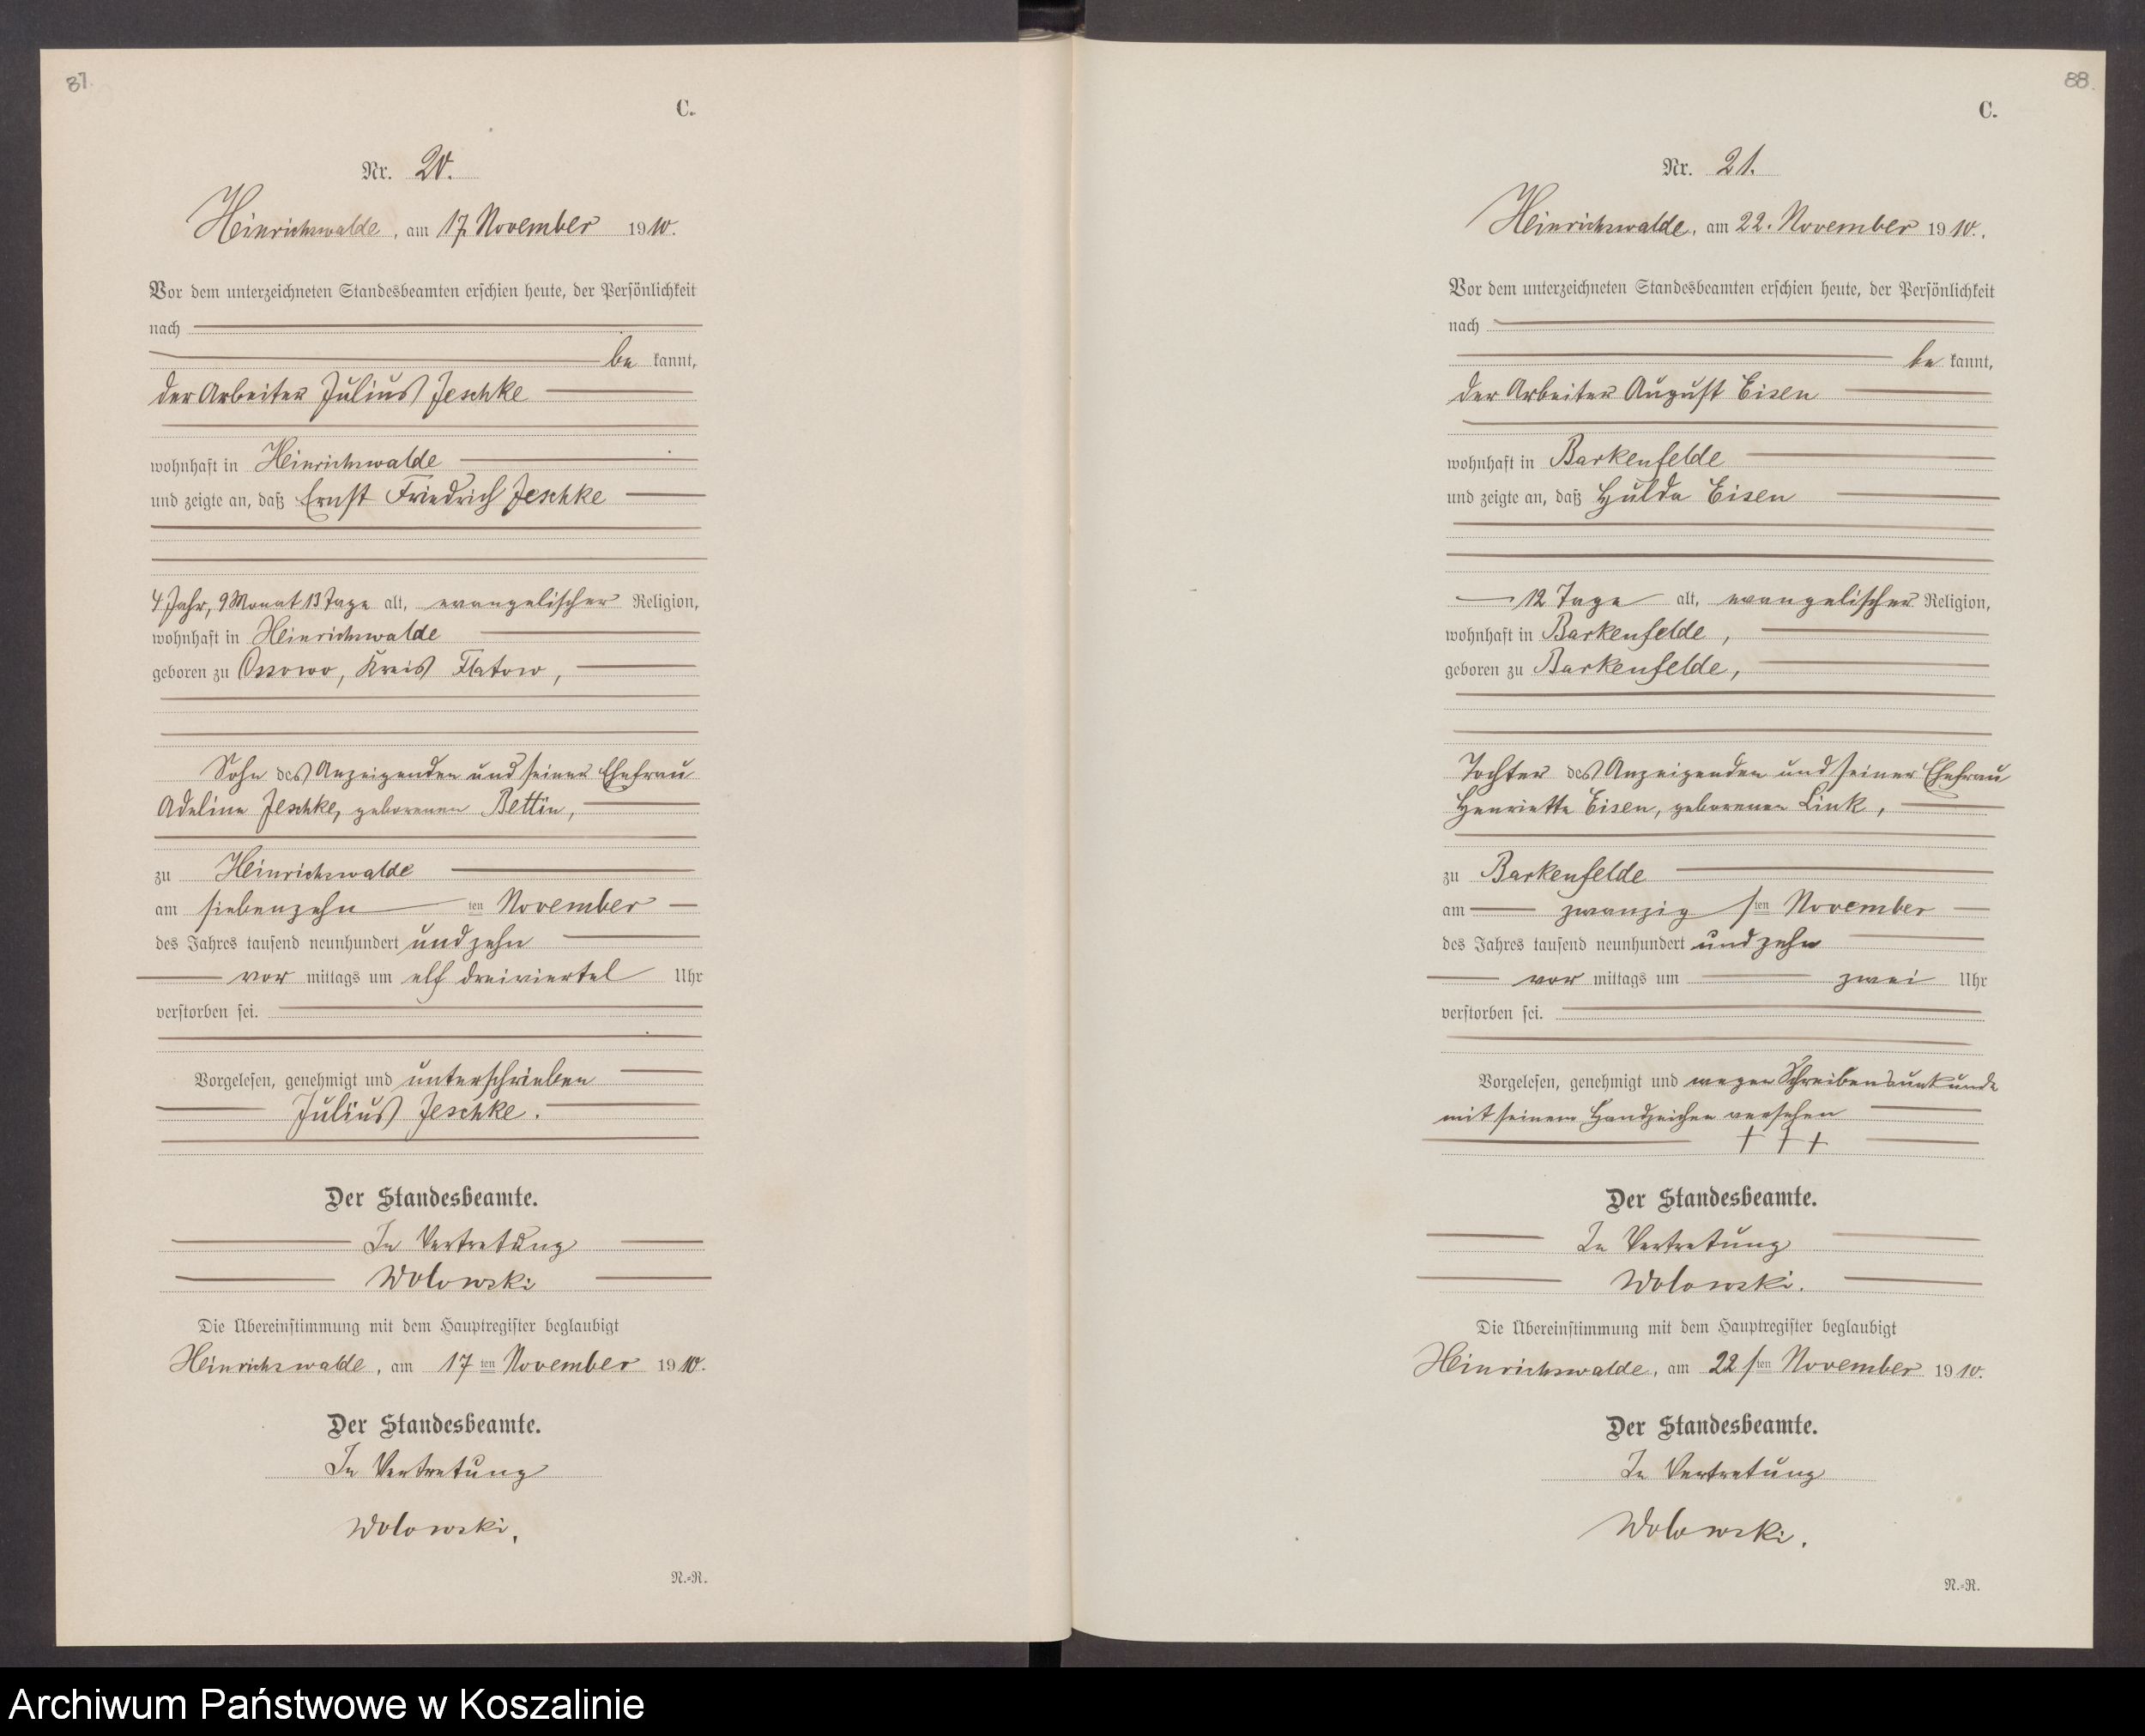 87.
C.
Nr. 20.
Heinrichswalde, am 17. November 1910.
Vor dem unterzeichneten Standesbeamten erschien heute, der Persönlichkeit
nach
be kannt,
der Arbeiter Julius Jeschke
wohnhaft in Heinrichswalde
und zeigte an, daß Ernst Friedrich Jeschke
4 Jahr, 9 Monat 13 Tage alt, evangelischer Religion,
wohnhaft in Heinrichswalde
geboren zu Ossowo, Kreis Flatow,
Sohn des Anzeigenden und seiner Ehefrau
Adeline Jeschke, geborenen Bettin,
zu Heinrichswalde
am siebenzehn ten November
des Jahres tausend neunhundert und zehn
vor mittags um elf dreiviertel Uhr
verstorben sei.
Vorgelesen, genehmigt und unterschrieben
Julius Jeschke.
Der Standesbeamte.
In Vertretung
Wolowski
Die Übereinstimmung mit dem Hauptregister beglaubigt
Heinrichswalde, am 17 ten November 1910.
Der Standesbeamte.
In Vertretung
Wolowski.
N.-R.
88.
C.
Nr. 21.
Heinrichswalde, am 22. November 1910.
Vor dem unterzeichneten Standesbeamten erschien heute, der Persönlichkeit
nach
be kannt,
der Arbeiter August Eisen
wohnhaft in Barkenfelde
und zeigte an, daß Hulda Eisen
12 Tage alt, evangelischer Religion,
wohnhaft in Barkenfelde,
geboren zu Barkenfelde,
Tochter des Anzeigenden und seiner Ehefrau
Henriette Eisen, geborenen Link,
zu Barkenfelde
am zwanzig sten November
des Jahres tausend neunhundert und zehn
vor mittags um zwei Uhr
verstorben sei.
Vorgelesen, genehmigt und wegen Schreibensunkunde
mit seinem Handzeichen versehen
+ + +
Der Standesbeamte.
In Vertretung
Wolowski.
Die Übereinstimmung mit dem Hauptregister beglaubigt
Heinrichswalde, am 22 sten November 1910.
Der Standesbeamte.
In Vertretung
Wolowski.
N.-R.
Archiwum Państwowe w Koszalinie